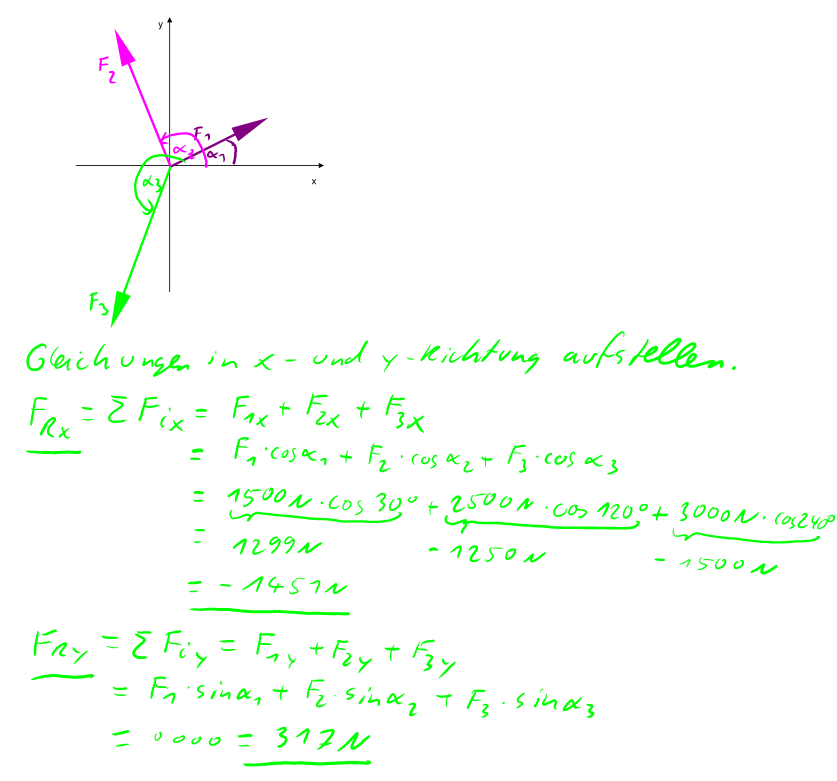 y
F₂
F₁
α₂ α₁
x
α₃
F₃
Gleichungen in x- und y-Richtung aufstellen.
F_Rx = Σ F_ix = F_1x + F_2x + F_3x
= F₁·cosα₁ + F₂·cosα₂ + F₃·cosα₃
= 1500N·cos30° + 2500N·cos120° + 3000N·cos240°
= 1299N -1250N -1500N
= -1451N
F_Ry = Σ F_iy = F_1y + F_2y + F_3y
= F₁·sinα₁ + F₂·sinα₂ + F₃·sinα₃
= .... = 317N